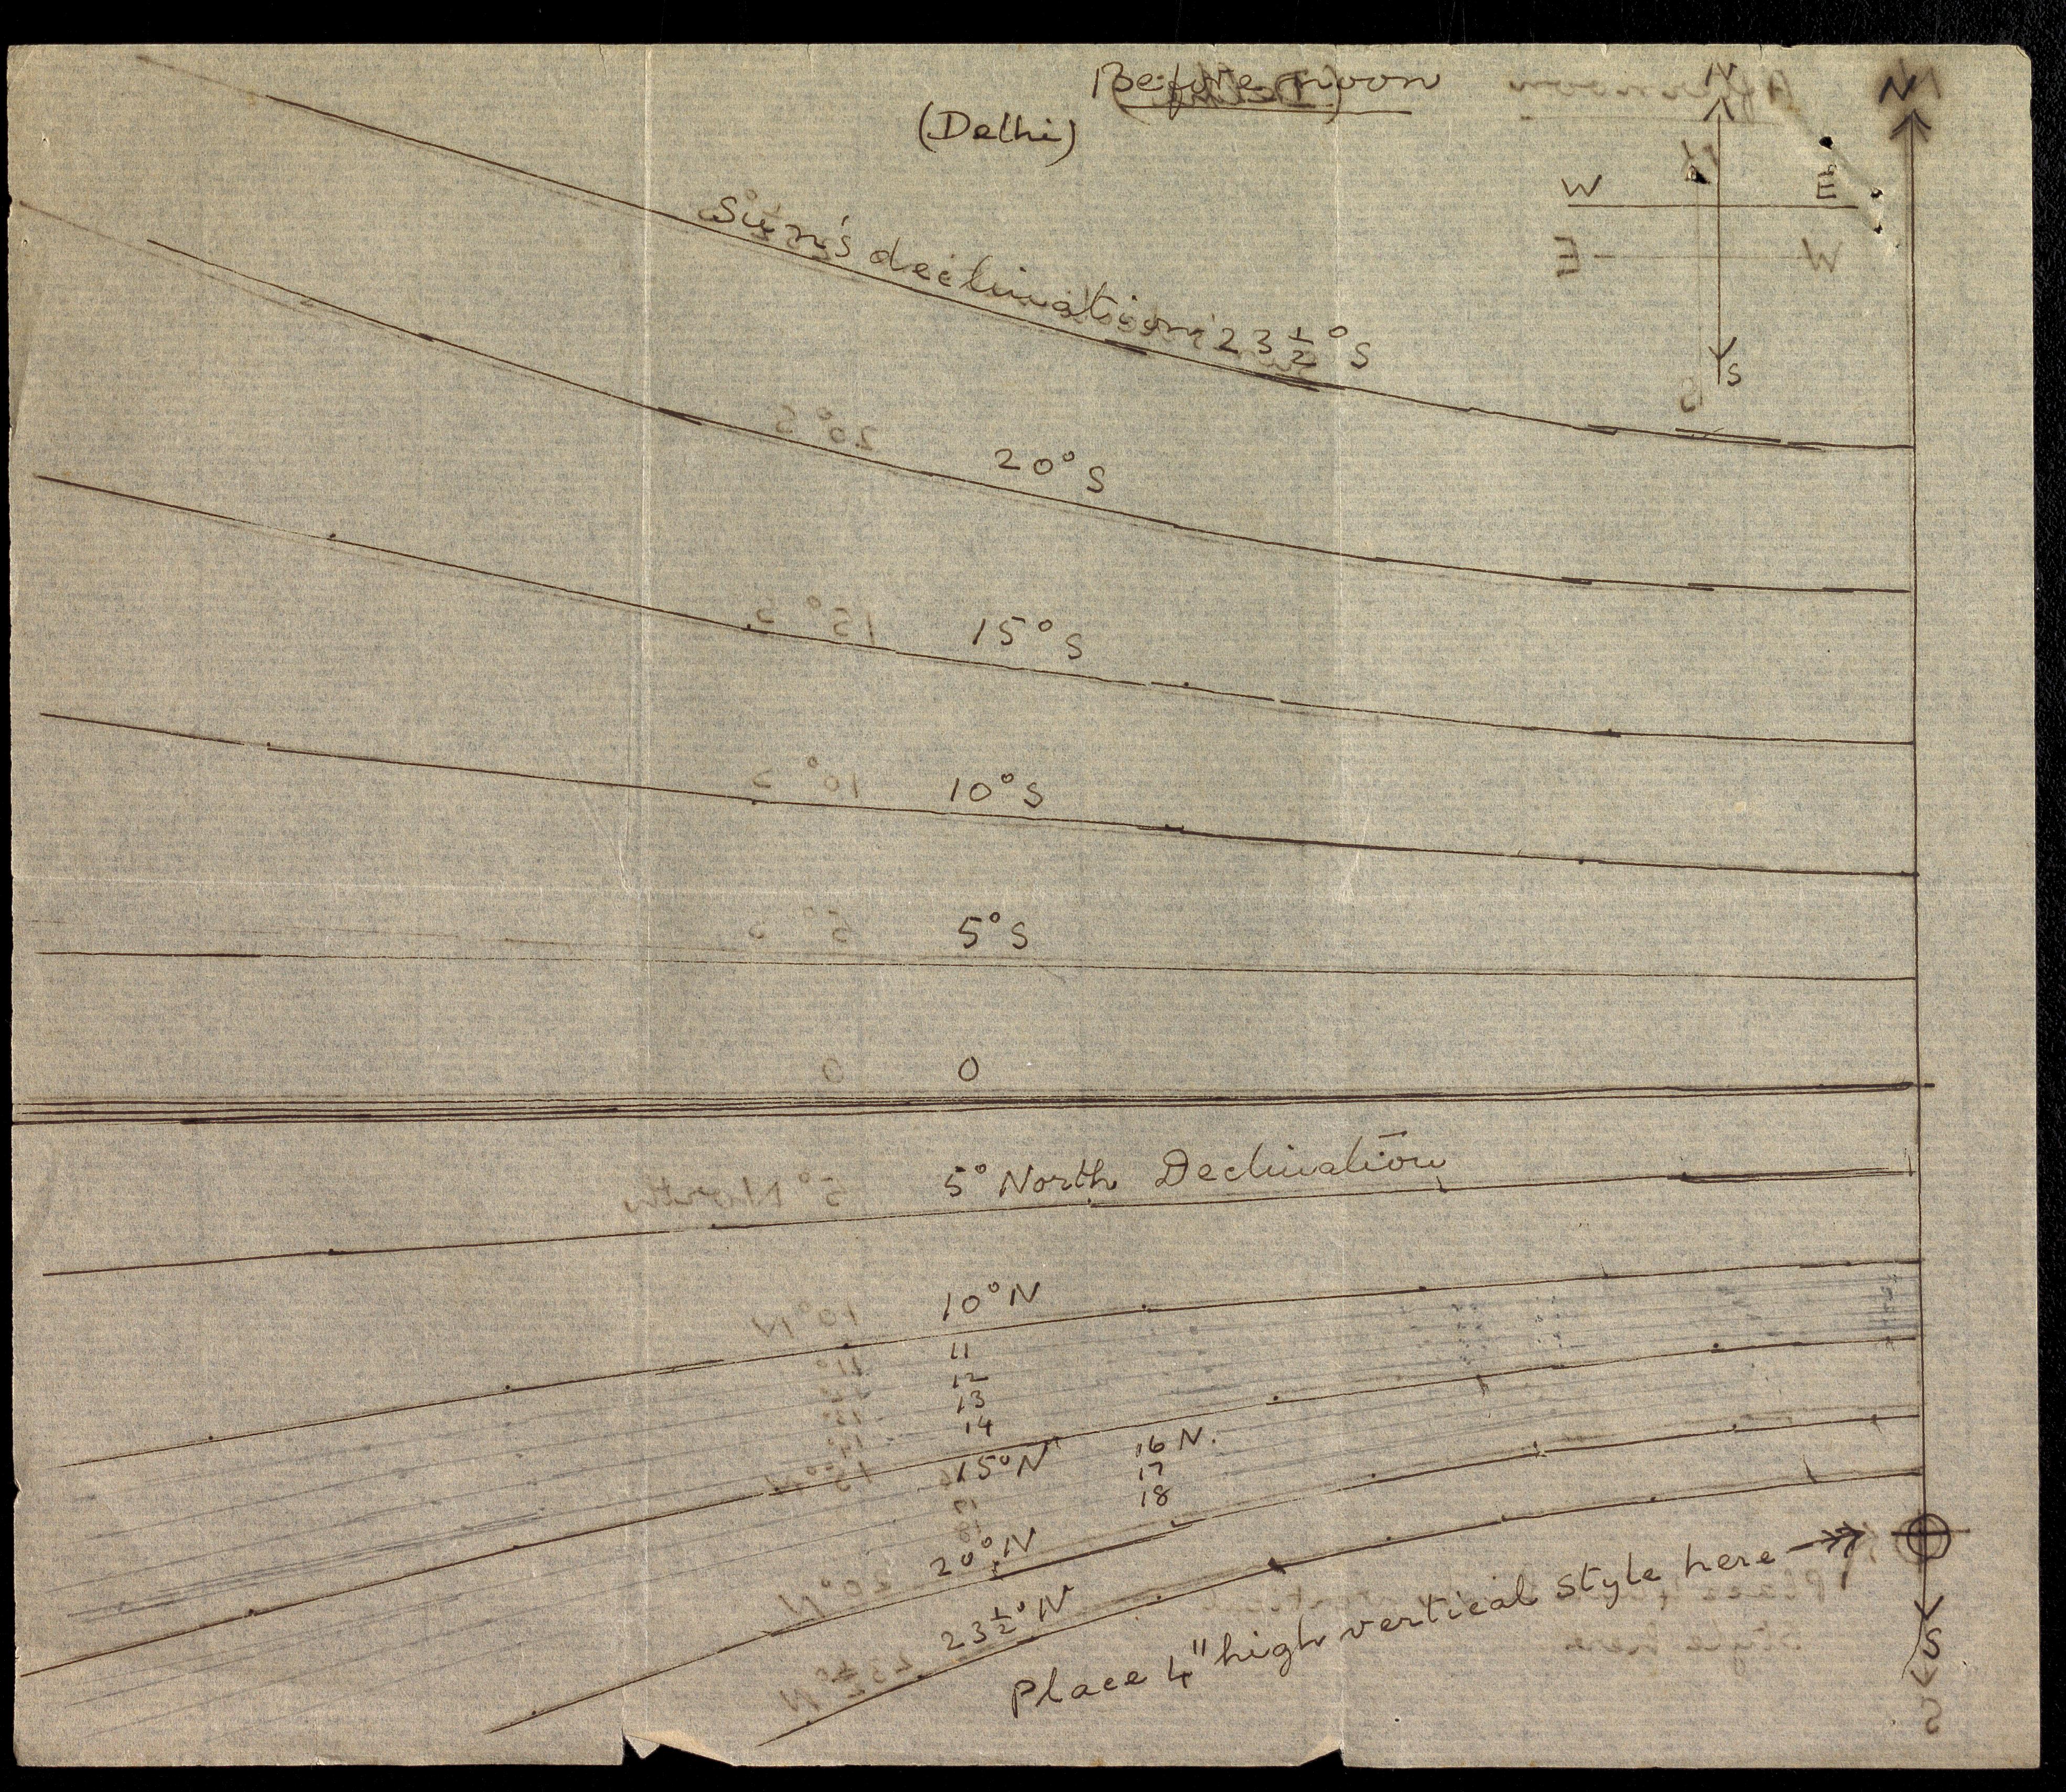 Before noon
(Delhi)
N
N
W
E
S
Sun's declination 23 ½° S
20° S
15° S
10° S
5° S
0
5° North Declination
10° N
11
12
13
14
15° N
16 N.
17
18
20° N
23 ½° N
Place 4" high vertical style here
S